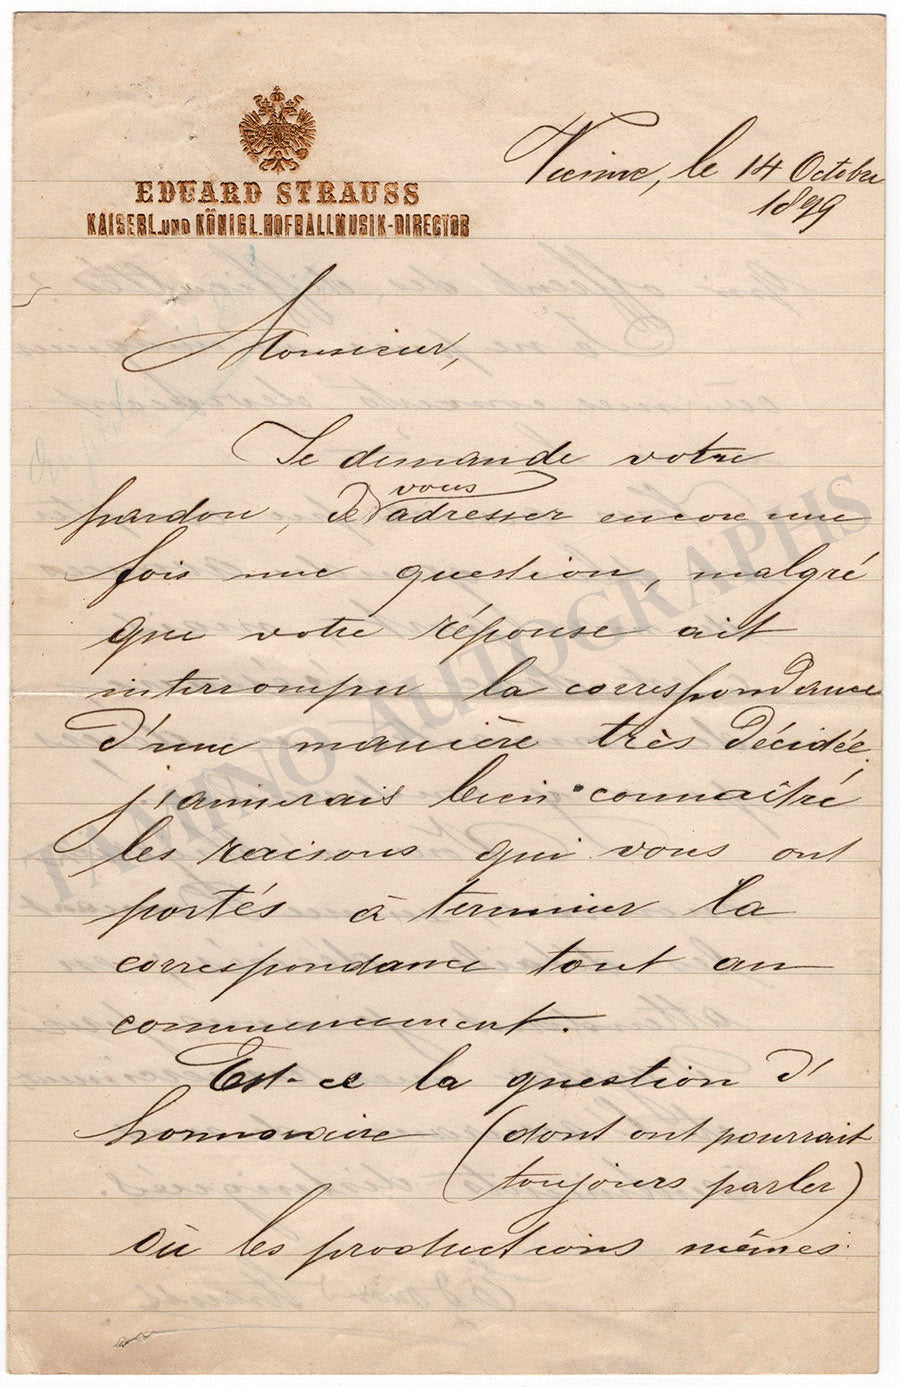 EDUARD STRAUSS
KAISERL. UND KÖNIGL. HOFBALLMUSIK-DIRECTOR
Vienne, le 14 Octobre
1899
Monsieur,
Je demande votre
pardon, de vous adresser encore une
fois une question, malgré
que votre réponse ait
interrompu la correspondance
d'une manière très décidée.
j'aimerais bien connaître
les raisons qui vous ont
portés à terminer la
correspondance tout au
commencement.
Est-ce la question d'
honnoraire (dont ont pourrait
toujours parler)
où les productions mêmes
TAMINO AUTOGRAPHS